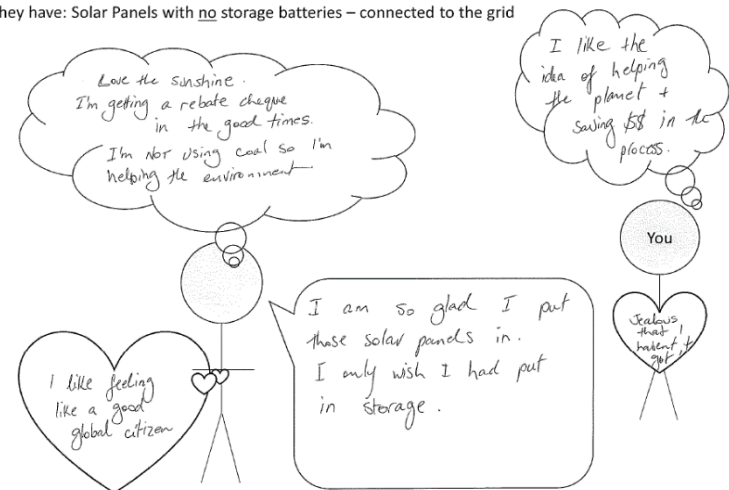 hey have: Solar Panels with no storage batteries – connected to the grid
Love the sunshine.
I'm getting a rebate cheque
in the good times.
I'm NOT using coal so I'm
helping the environment
I like the
idea of helping
the planet +
saving $$ in the
process.
You
I am so glad I put
those solar panels in.
I only wish I had put
in storage.
Jealous
that I
havent
got it
I like feeling
like a good
global citizen